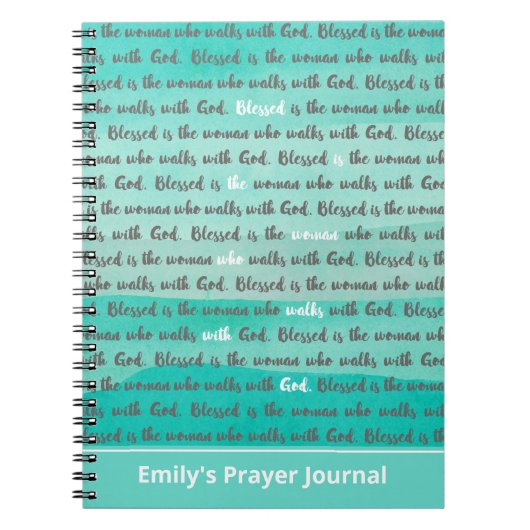 the woman who walks with God. Blessed is the
walks with God. Blessed is the woman who walks
Blessed is the woman who walks with God. Blessed
who walks with God. Blessed is the woman who
God. Blessed is the woman who walks with God.
woman who walks with God. Blessed is the woman
with God. Blessed is the woman who walks with
is the woman who walks with God. Blessed is the
walks with God. Blessed is the woman who walks
Blessed is the woman who walks with God. Blessed
is the woman who walks with God. Blessed is the woman who walks
God. Blessed is the woman who walks with God.
woman who walks with God. Blessed is the woman
with God. Blessed is the woman who walks with
is the woman who walks with God. Blessed is the
walks with God. Blessed is the woman who walks
Blessed is the woman who walks with God. Blessed
Emily's Prayer Journal